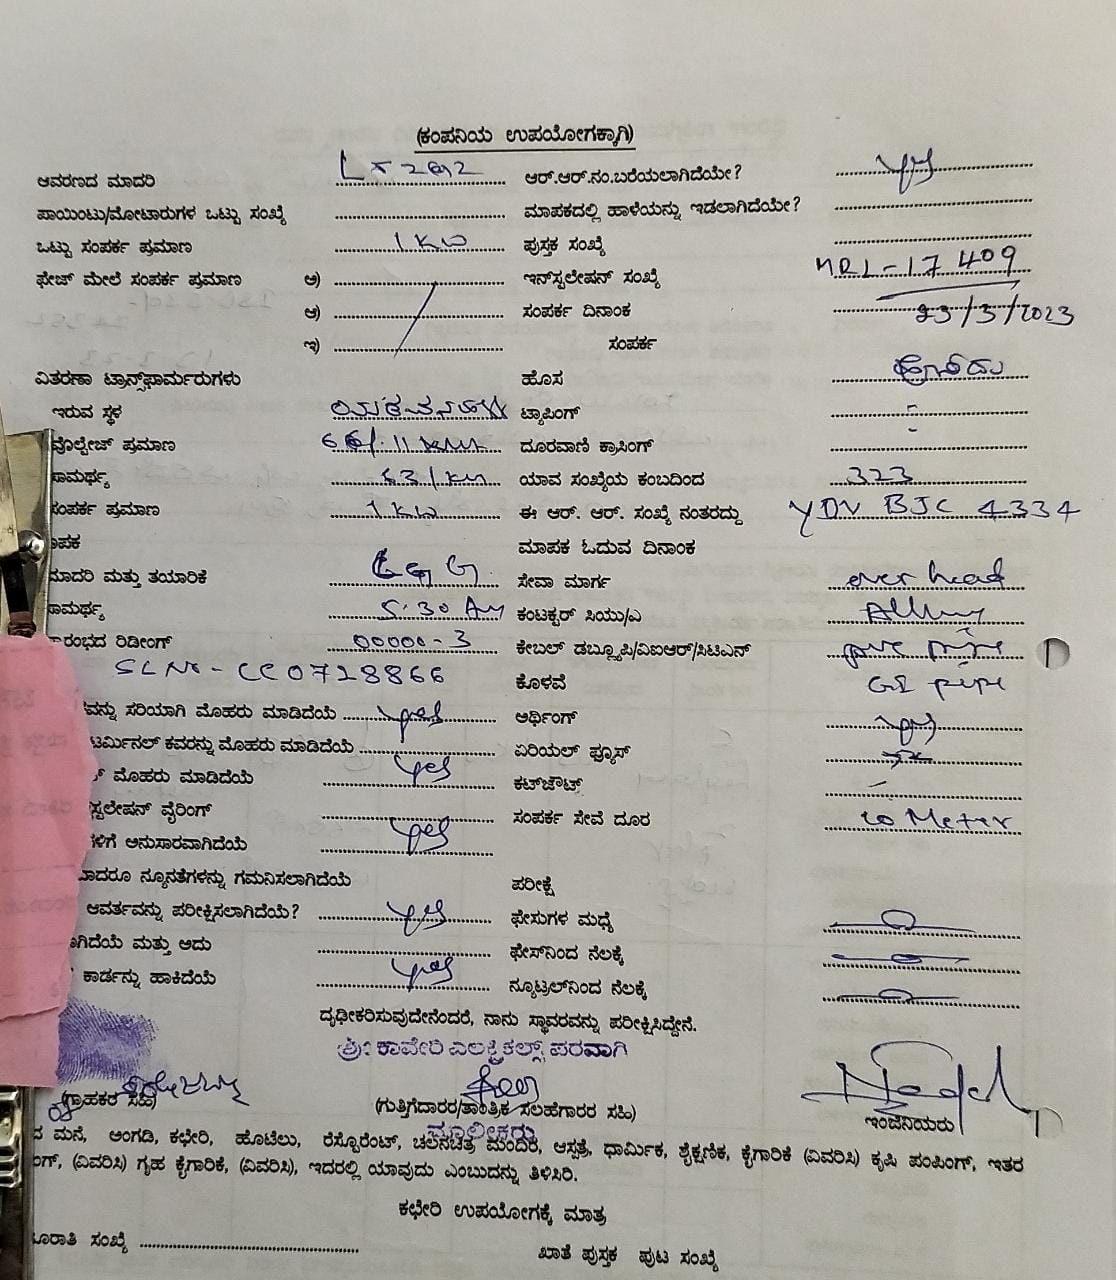 (ಕಂಪನಿಯ ಉಪಯೋಗಕ್ಕಾಗಿ)
ಆವರಣದ ಮಾದರಿ ಆರ್.ಆರ್.ನಂ.ಬರೆಯಲಾಗಿದೆಯೇ? yes
ಪಾಯಿಂಟು/ಮೋಟಾರುಗಳ ಒಟ್ಟು ಸಂಖ್ಯೆ ಮಾಪಕದಲ್ಲಿ ಹಾಳೆಯನ್ನು ಇಡಲಾಗಿದೆಯೇ?
ಒಟ್ಟು ಸಂಪರ್ಕ ಪ್ರಮಾಣ 1 KW ಪುಸ್ತಕ ಸಂಖ್ಯೆ
ಫೇಜ್ ಮೇಲೆ ಸಂಪರ್ಕ ಪ್ರಮಾಣ ಅ) ಇನ್‌ಸ್ಟಲೇಷನ್ ಸಂಖ್ಯೆ MRL-17409
ಆ) ಸಂಪರ್ಕ ದಿನಾಂಕ 23/3/2023
ಇ) ಸಂಪರ್ಕ
ವಿತರಣಾ ಟ್ರಾನ್ಸ್‌ಫಾರ್ಮರುಗಳು ಹೊಸ
ಇರುವ ಸ್ಥಳ ಟ್ಯಾಪಿಂಗ್
ವೊಲ್ಟೇಜ್ ಪ್ರಮಾಣ ದೂರವಾಣಿ ಕ್ರಾಸಿಂಗ್
ಸಾಮರ್ಥ್ಯ ಯಾವ ಸಂಖ್ಯೆಯ ಕಂಬದಿಂದ 323
ಸಂಪರ್ಕ ಪ್ರಮಾಣ 1 KW ಈ ಆರ್. ಆರ್. ಸಂಖ್ಯೆ ನಂತರದ್ದು YDV BJC 4334
ಾಪಕ ಮಾಪಕ ಓದುವ ದಿನಾಂಕ
ಮಾದರಿ ಮತ್ತು ತಯಾರಿಕೆ ಸೇವಾ ಮಾರ್ಗ over head
ಸಾಮರ್ಥ್ಯ ಕಂಟಕ್ಟರ್ ಸಿಯು/ಎ
ಾರಂಭದ ರಿಡೀಂಗ್ 00000-3 ಕೇಬಲ್ ಡಬ್ಲ್ಯೂಪಿ/ವಿಐಆರ್/ಸಿಟಿಎಸ್
SL No - CC0728866 ಕೊಳವೆ GI pipe
ವನ್ನು ಸರಿಯಾಗಿ ಮೊಹರು ಮಾಡಿದೆಯೆ yes ಅರ್ಥಿಂಗ್ yes
ಟರ್ಮಿನಲ್ ಕವರನ್ನು ಮೊಹರು ಮಾಡಿದೆಯೆ ಏರಿಯಲ್ ಫ್ಯೂಸ್
ಮೊಹರು ಮಾಡಿದೆಯೆ yes ಕಟ್‌ಔಟ್ -
ಸ್ಟಲೇಷನ್ ವೈರಿಂಗ್ ಸಂಪರ್ಕ ಸೇವೆ ದೂರ 20 Meter
ಳಿಗೆ ಅನುಸಾರವಾಗಿದೆಯೆ yes
ಾದರೂ ನ್ಯೂನತೆಗಳನ್ನು ಗಮನಿಸಲಾಗಿದೆಯೆ ಪರೀಕ್ಷೆ
ಆವರ್ತವನ್ನು ಪರೀಕ್ಷಿಸಲಾಗಿದೆಯೆ? yes ಫೇಸುಗಳ ಮಧ್ಯೆ
ಾಗಿದೆಯೆ ಮತ್ತು ಅದು ಫೇಸ್‌ನಿಂದ ನೆಲಕ್ಕೆ
ಕಾರ್ಡನ್ನು ಹಾಕಿದೆಯೆ yes ನ್ಯೂಟ್ರಲ್‌ನಿಂದ ನೆಲಕ್ಕೆ
ದೃಢೀಕರಿಸುವುದೇನೆಂದರೆ, ನಾನು ಸ್ಥಾವರವನ್ನು ಪರೀಕ್ಷಿಸಿದ್ದೇನೆ.
ಶ್ರೀ ಕಾವೇರಿ ಎಲೆಕ್ಟ್ರಿಕಲ್ಸ್ ಪರವಾಗಿ
(ಗ್ರಾಹಕರ ಸಹಿ) (ಗುತ್ತಿಗೆದಾರರ/ತಾಂತ್ರಿಕ ಸಲಹೆಗಾರರ ಸಹಿ) ಇಂಜಿನಿಯರು
ಮಾಲೀಕರು
ದ ಮನೆ, ಅಂಗಡಿ, ಕಛೇರಿ, ಹೊಟೆಲು, ರೆಸ್ಟೊರೆಂಟ್, ಚಲನಚಿತ್ರ ಮಂದಿರ, ಆಸ್ಪತ್ರೆ, ಧಾರ್ಮಿಕ, ಶೈಕ್ಷಣಿಕ, ಕೈಗಾರಿಕೆ (ವಿವರಿಸಿ) ಕೃಷಿ ಪಂಪಿಂಗ್, ಇತರ
ಂಗ್, (ವಿವರಿಸಿ) ಗೃಹ ಕೈಗಾರಿಕೆ, (ವಿವರಿಸಿ), ಇದರಲ್ಲಿ ಯಾವುದು ಎಂಬುದನ್ನು ತಿಳಿಸಿರಿ.
ಕಛೇರಿ ಉಪಯೋಗಕ್ಕೆ ಮಾತ್ರ
ಸಂಖ್ಯೆ ಖಾತೆ ಪುಸ್ತಕ ಪುಟ ಸಂಖ್ಯೆ